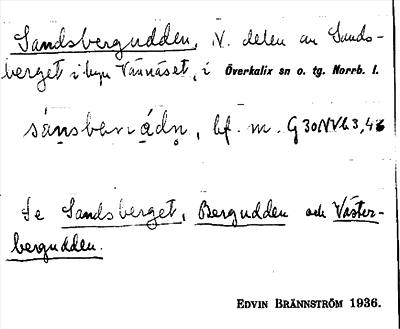 Sandsbergudden, V. delen av Sands-
berget i byn Vännäset, i Överkalix sn o. tg. Norrb. l.
bf. m. G30NVh3,43
Se Sandsberget, Bergudden och Väster-
bergudden.
EDVIN BRÄNNSTRÖM 1936.